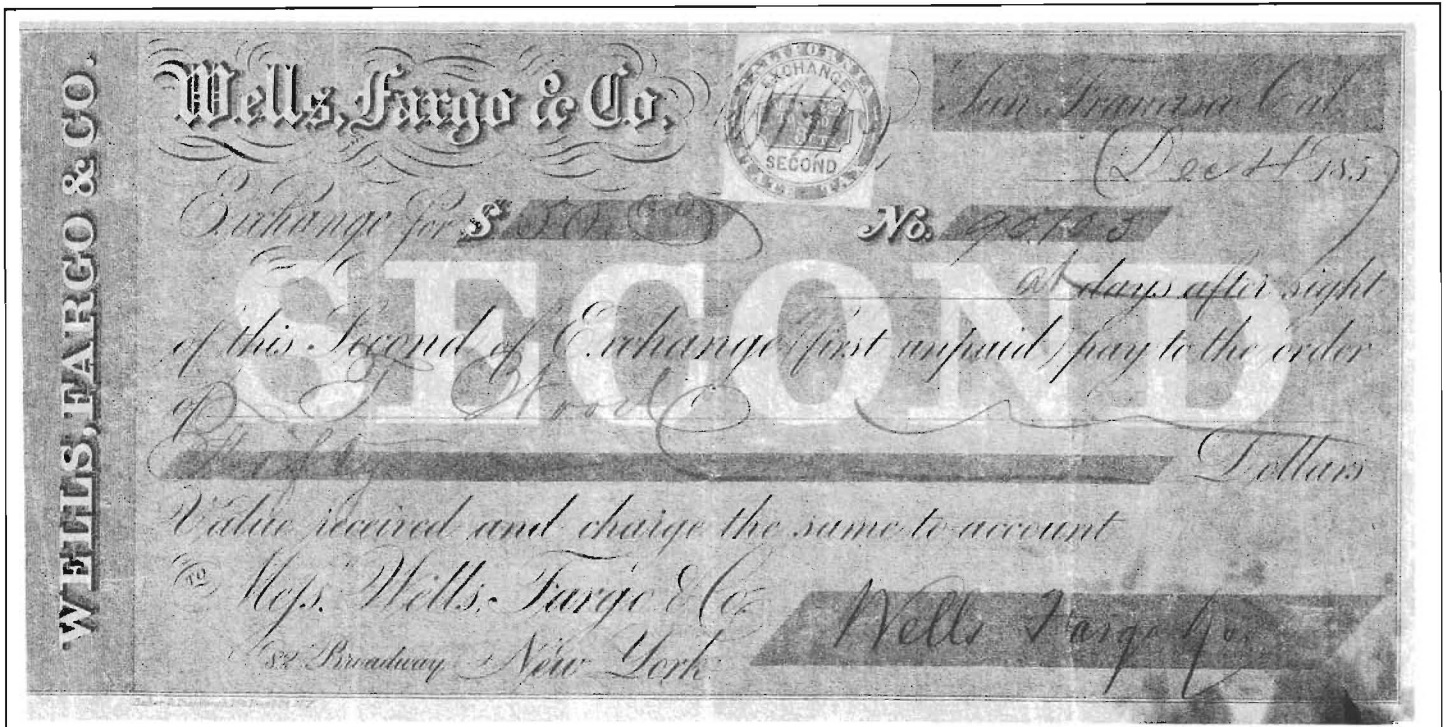 WELLS, FARGO & CO.
Wells, Fargo & Co.
EXCHANGE
SECOND
San Francisco Cal.
Dec 4 1857
Exchange for $ 50.00 No.
SECOND
at days after sight
of this Second of Exchange (first unpaid) pay to the order
of Wood
Fifty Dollars
Value received and charge the same to account
TO Mess. Wells, Fargo & Co.
82 Broadway New York.
Wells Fargo & Co.